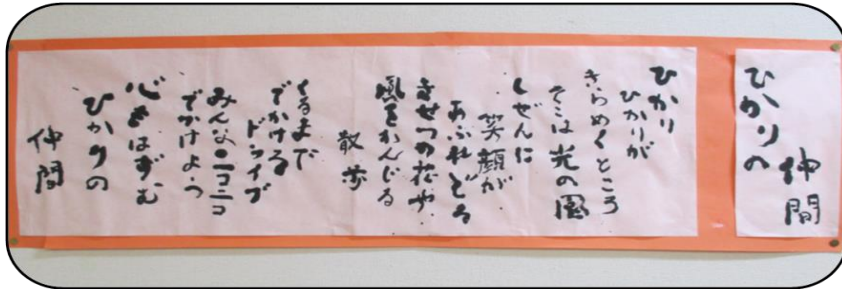 ひかりの
仲間
ひかり
ひかりが
きらめくところ
そこは光の園
しぜんに
笑顔が
あふれでる
きせつの花や
風をかんじる
散歩
くるまで
でかける
ドライブ
みんなニコニコ
でかけよう
心もはずむ
ひかりの
仲間